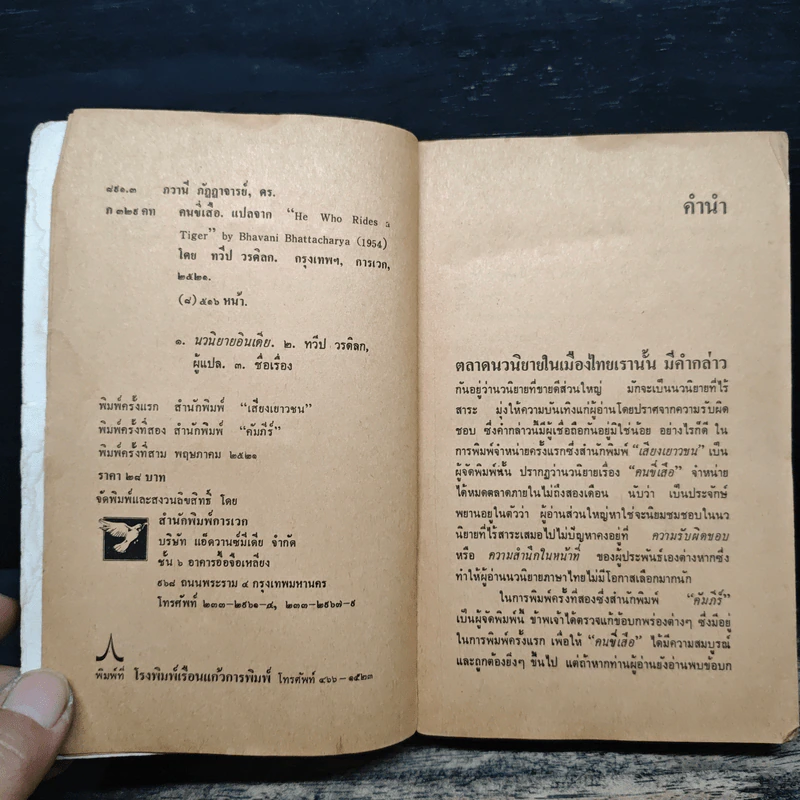 ๘๙๑.๓ ภวานี ภัฏฏาจารย์, ดร.
ภ ๓๒๙ คท คนขี่เสือ. แปลจาก “He Who Rides a
Tiger” by Bhavani Bhattacharya (1954)
โดย ทวีป วรดิลก. กรุงเทพฯ, การเวก,
๒๕๒๑.
(๘) ๕๑๖ หน้า.
๑. นวนิยายอินเดีย. ๒. ทวีป วรดิลก,
ผู้แปล. ๓. ชื่อเรื่อง
พิมพ์ครั้งแรก สำนักพิมพ์ “เสียงเยาวชน”
พิมพ์ครั้งที่สอง สำนักพิมพ์ “คัมภีร์”
พิมพ์ครั้งที่สาม พฤษภาคม ๒๕๒๑
ราคา ๒๘ บาท
จัดพิมพ์และสงวนลิขสิทธิ์ โดย
สำนักพิมพ์การเวก
บริษัท แอ็ดวานซ์มีเดีย จำกัด
ชั้น ๖ อาคารอื้อจือเหลียง
๙๖๘ ถนนพระราม ๔ กรุงเทพมหานคร
โทรศัพท์ ๒๓๓-๒๙๖๑-๔, ๒๓๓-๒๙๖๗-๙
พิมพ์ที่ โรงพิมพ์เรือนแก้วการพิมพ์ โทรศัพท์ ๔๖๖-๑๕๒๓
คำนำ
ตลาดนวนิยายในเมืองไทยเรานั้น มีคำกล่าว
กันอยู่ว่านวนิยายที่ขายดีส่วนใหญ่ มักจะเป็นนวนิยายที่ไร้
สาระ มุ่งให้ความบันเทิงแก่ผู้อ่านโดยปราศจากความรับผิด
ชอบ ซึ่งคำกล่าวนี้มีผู้เชื่อถือกันอยู่มิใช่น้อย อย่างไรก็ดี ใน
การพิมพ์จำหน่ายครั้งแรกซึ่งสำนักพิมพ์ “เสียงเยาวชน” เป็น
ผู้จัดพิมพ์นั้น ปรากฏว่านวนิยายเรื่อง “คนขี่เสือ” จำหน่าย
ได้หมดตลาดภายในไม่ถึงสองเดือน นับว่า เป็นประจักษ์
พยานอยู่ในตัวว่า ผู้อ่านส่วนใหญ่หาใช่จะนิยมชมชอบในนว
นิยายที่ไร้สาระเสมอไปไม่ปัญหาคงอยู่ที่ ความรับผิดชอบ
หรือ ความสำนึกในหน้าที่ ของผู้ประพันธ์เองต่างหากซึ่ง
ทำให้ผู้อ่านนวนิยายภาษาไทยไม่มีโอกาสเลือกมากนัก
ในการพิมพ์ครั้งที่สองซึ่งสำนักพิมพ์ “คัมภีร์”
เป็นผู้จัดพิมพ์นี้ ข้าพเจ้าได้ตรวจแก้ข้อบกพร่องต่างๆ ซึ่งมีอยู่
ในการพิมพ์ครั้งแรก เพื่อให้ “คนขี่เสือ” ได้มีความสมบูรณ์
และถูกต้องยิ่งๆ ขึ้นไป แต่ถ้าหากท่านผู้อ่านยังอ่านพบข้อบก